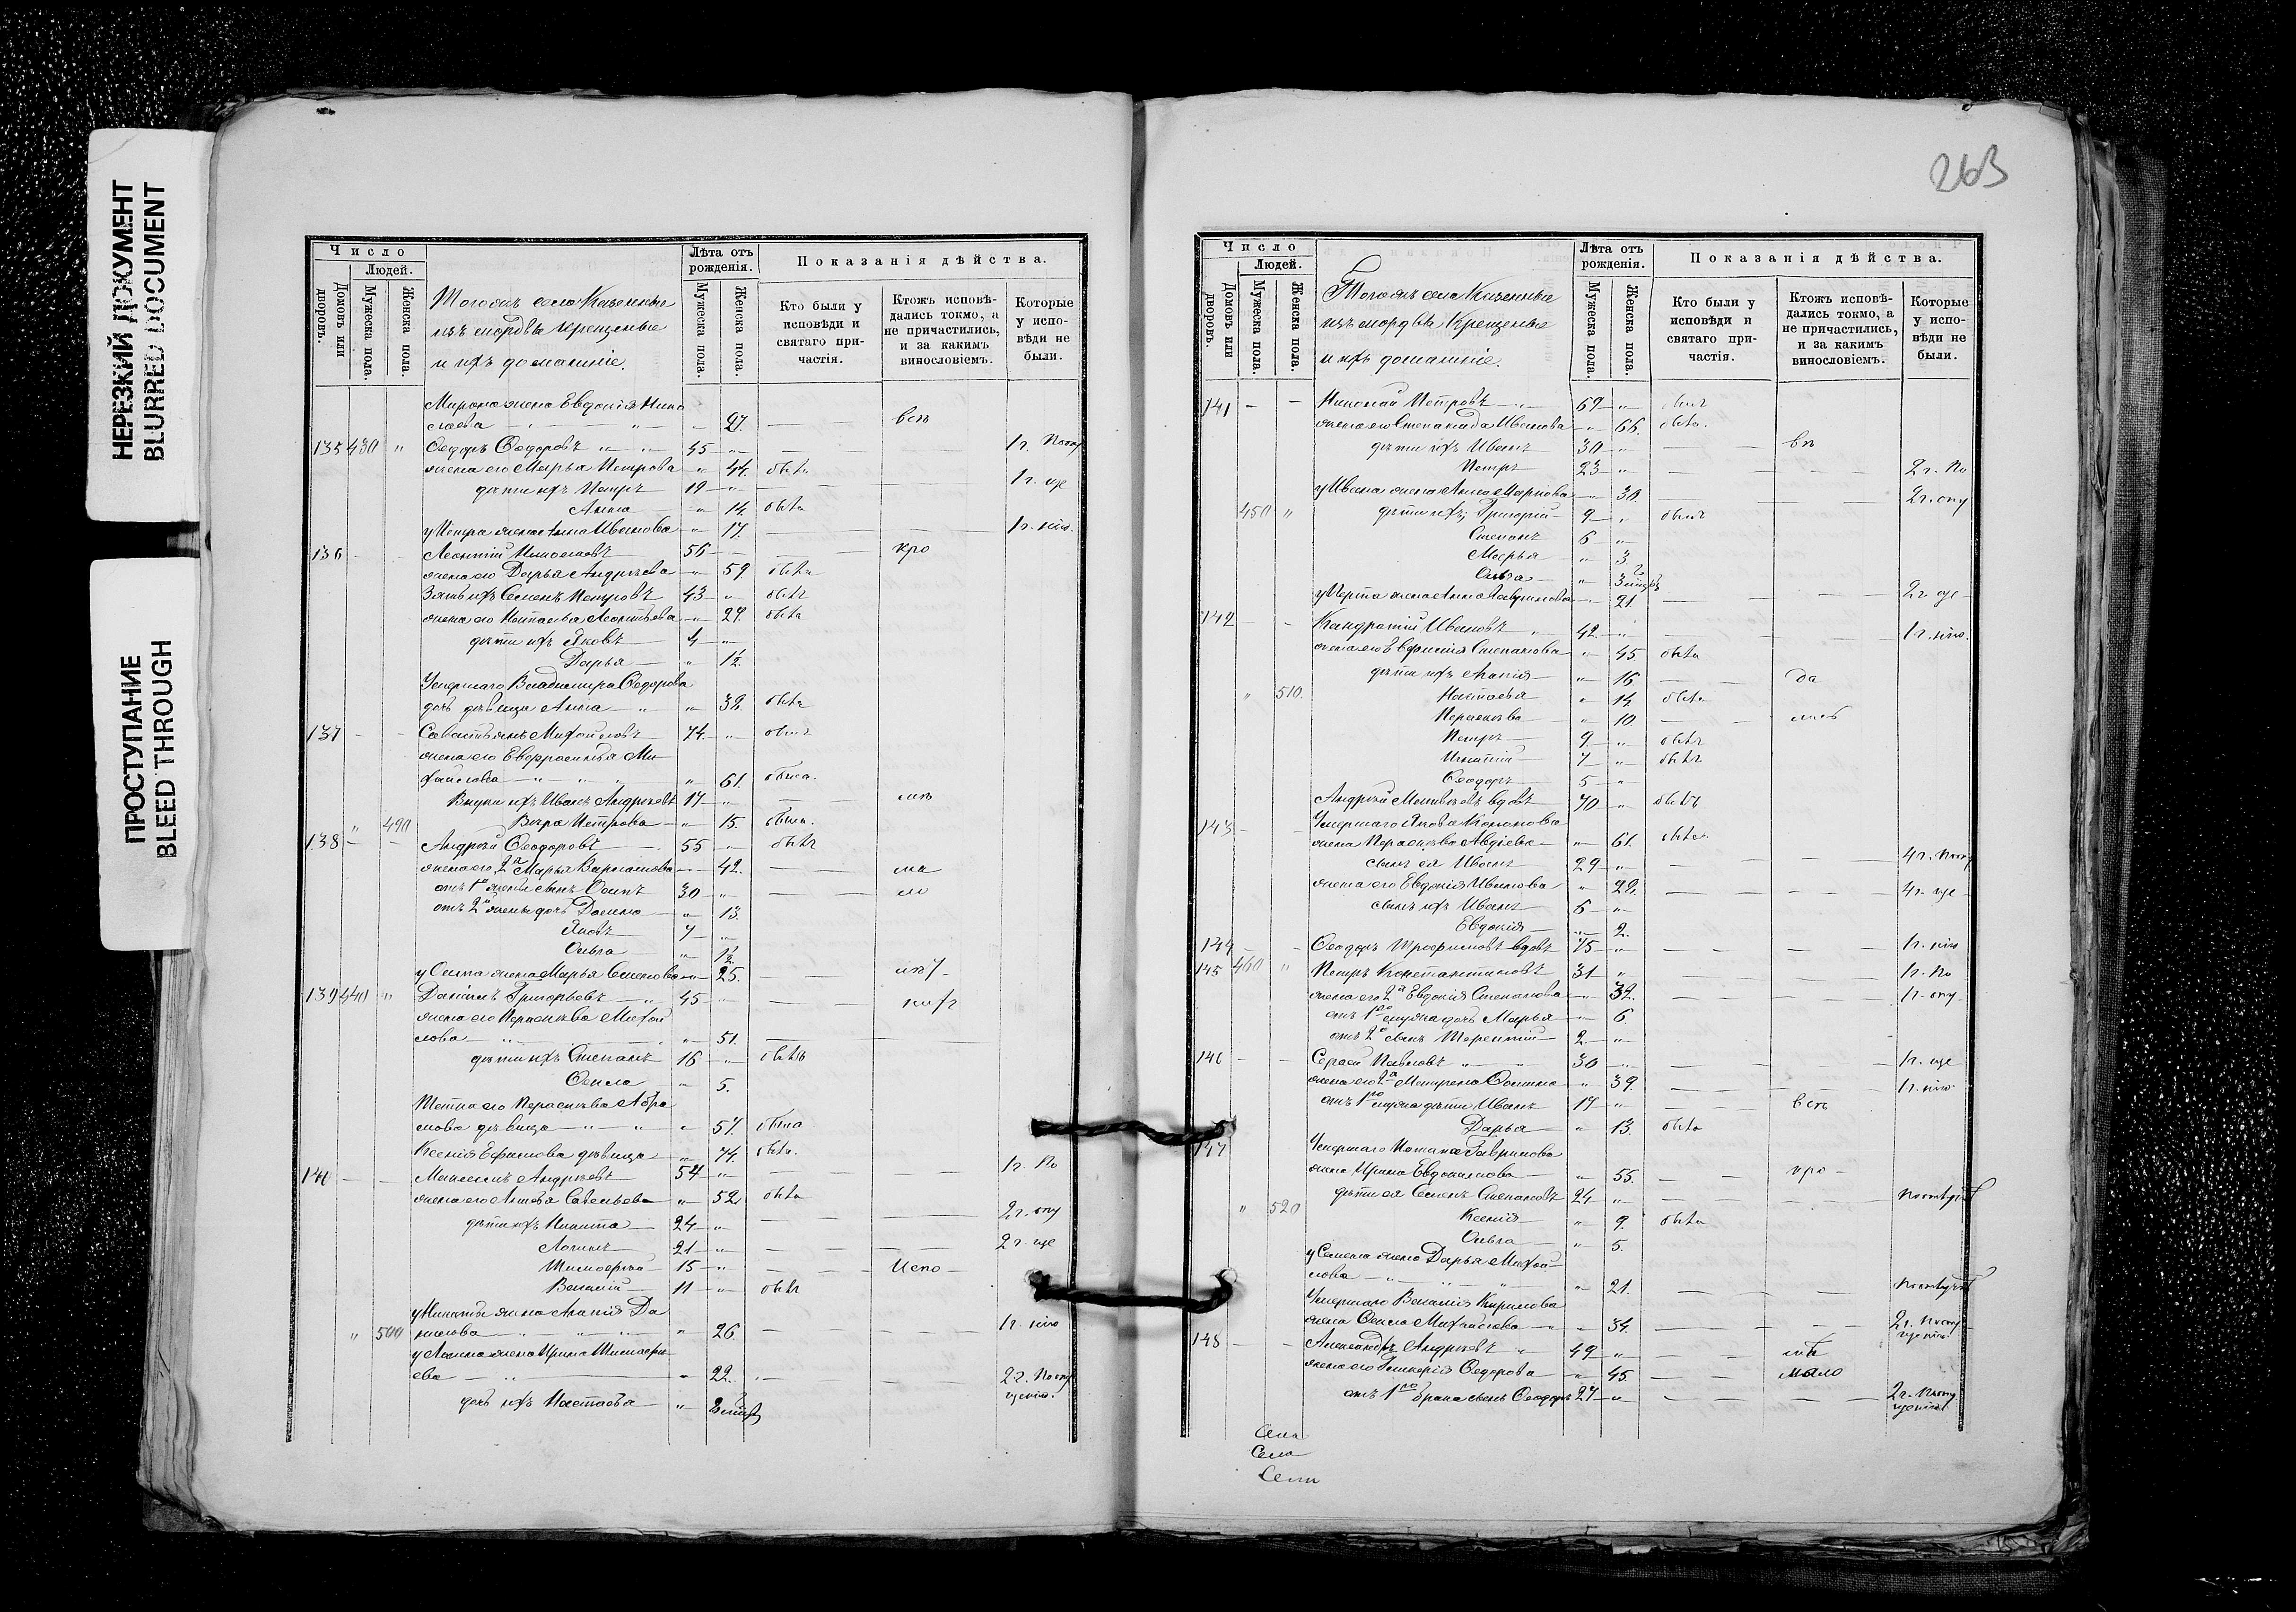 НЕРЕЗКИЙ ДОКУМЕНТ
BLURRED DOCUMENT
ПРОСТУПАНИЕ
BLEED THROUGH
Число
Людей.
Домовъ или дворовъ.
Мужеска пола.
Женска пола.
Тогожъ села Казенные
изъ мордвы крещеные
и ихъ домашніе.
Лѣта отъ рожденія.
Мужеска пола.
Женска пола.
Показанія дѣйства.
Кто были у исповѣди и святаго причастія.
Ктожъ исповѣдались токмо, а не причастились, и за какимъ винословіемъ.
Которые у исповѣди не были.
Мирона жена Евдокія Нико
лаева 27.
135 430 " Ѳедоръ Ѳедоровъ 45
жена его Марья Петрова 44. была
дѣти ихъ Петръ 19
Анна 14. была
у Петра жена Анна Иванова 17.
136 Леонтій Николаевъ 56
жена его Дарья Андреева 59 была
Зять ихъ Семенъ Петровъ 43 былъ
жена его Настасья Леонтьева 27. была
дѣти ихъ Яковъ 4
Дарья 1½
Умершаго Владимира Ѳедорова
дочь дѣвица Анна 32. была
137 Савастьянъ Михайловъ 74. былъ
жена его Евфросинья Ми
хайлова 61. была.
Внуки ихъ Иванъ Андреевъ 17
" 490 Вѣра Петрова 15. была.
138 Андрей Ѳеодоровъ 55 былъ
жена его 2я Марья Варламова 42.
отъ 1й жены сынъ Осипъ 30
отъ 2й жены дочь 13.
Яковъ 7
Ольга 1½
у Осипа жена Марья Семенова 25.
139 440 " Даніилъ Григорьевъ 45
жена его Парасковья Михай
лова 51.
дѣти ихъ Степанъ 16 былъ
Ѳекла 5.
Тетка его Парасковья Абра
мова дѣвица 57. была
Ксенія Ефимова дѣвица 74. была.
140 Максимъ Андреевъ 54 1 г. по
жена его Анна Савельева 52 была
дѣти ихъ Никита 24 2 г. опу
Логинъ 21 2 г. ще
Тимоѳей 15 Испо
Василій 11 былъ
у Никиты жена Агапія Да
" 500 нилова 26. 1 г. нію
у Логина жена Ирина Тимоѳе
ева 22. 2 г. по опу
щенію.
дочь ихъ Настасья
263
Число
Людей.
Домовъ или дворовъ.
Мужеска пола.
Женска пола.
Тогожъ села Казенные
изъ мордвы Крещеные
и ихъ домашніе.
Лѣта отъ рожденія.
Мужеска пола.
Женска пола.
Показанія дѣйства.
Кто были у исповѣди и святаго причастія.
Ктожъ исповѣдались токмо, а не причастились, и за какимъ винословіемъ.
Которые у исповѣди не были.
141 Николай Петровъ 67 былъ
жена его Степанида Иванова 66. была.
дѣти ихъ Иванъ 30
Петръ 23 2 г. по
у Ивана жена Анна Маркова 30 2 г. опу
450 " дѣти ихъ Григорій 9 былъ
Степанъ 6
Марья 3.
Ольга
у Петра жена Анна Гаврилова 21. 2 г. ще
142 Кандратій Ивановъ 42. 1 г. нію.
жена его Евфимія Степанова 45 была
дѣти ихъ Агапія 16 да
" 510 Настасья 14 была
Парасковья 10.
Петръ 9 былъ
Игнатій 7 былъ
Ѳеодоръ 5
Андрей Матвѣевъ вдовъ 70 былъ
143 Умершаго Якова Кононова
жена Парасковья Авдіева 61. была
сынъ ея Иванъ 29
жена его Евдокія Иванова 22. 4 г. ще
сынъ ихъ Иванъ 6
Евдокія 2.
144 Ѳеодоръ Трофимовъ вдовъ 75 1 г. нію
145 460 " Петръ Константиновъ 31 1 г. по
жена его 2я Евдокія Степанова 32. 1 г. опу
отъ 1го мужа дочь Марья 6.
отъ 2го сынъ Терентій 2
146 Сергѣй Павловъ 30 1 г. ще
жена его 2я Матрена Осипова 39. 1 г. нію
отъ 1го мужа дѣти Иванъ 17
Дарья 13. была
147 Умершаго Гаврилова
жена Ирина Евдокимова 55. про
дѣти ея Семенъ Степановъ 24
" 520 Ксенія 9. была
Ольга 5.
у Семена жена Дарья Михай
лова 21.
Умершаго Василія Кирилова
жена Ѳекла Михайлова 34.
148 Александръ Андреевъ 49
жена его Гликерія Ѳедорова 45. мало
отъ 1го брака сынъ Ѳеодоръ 27 2 г. по опу
щенію